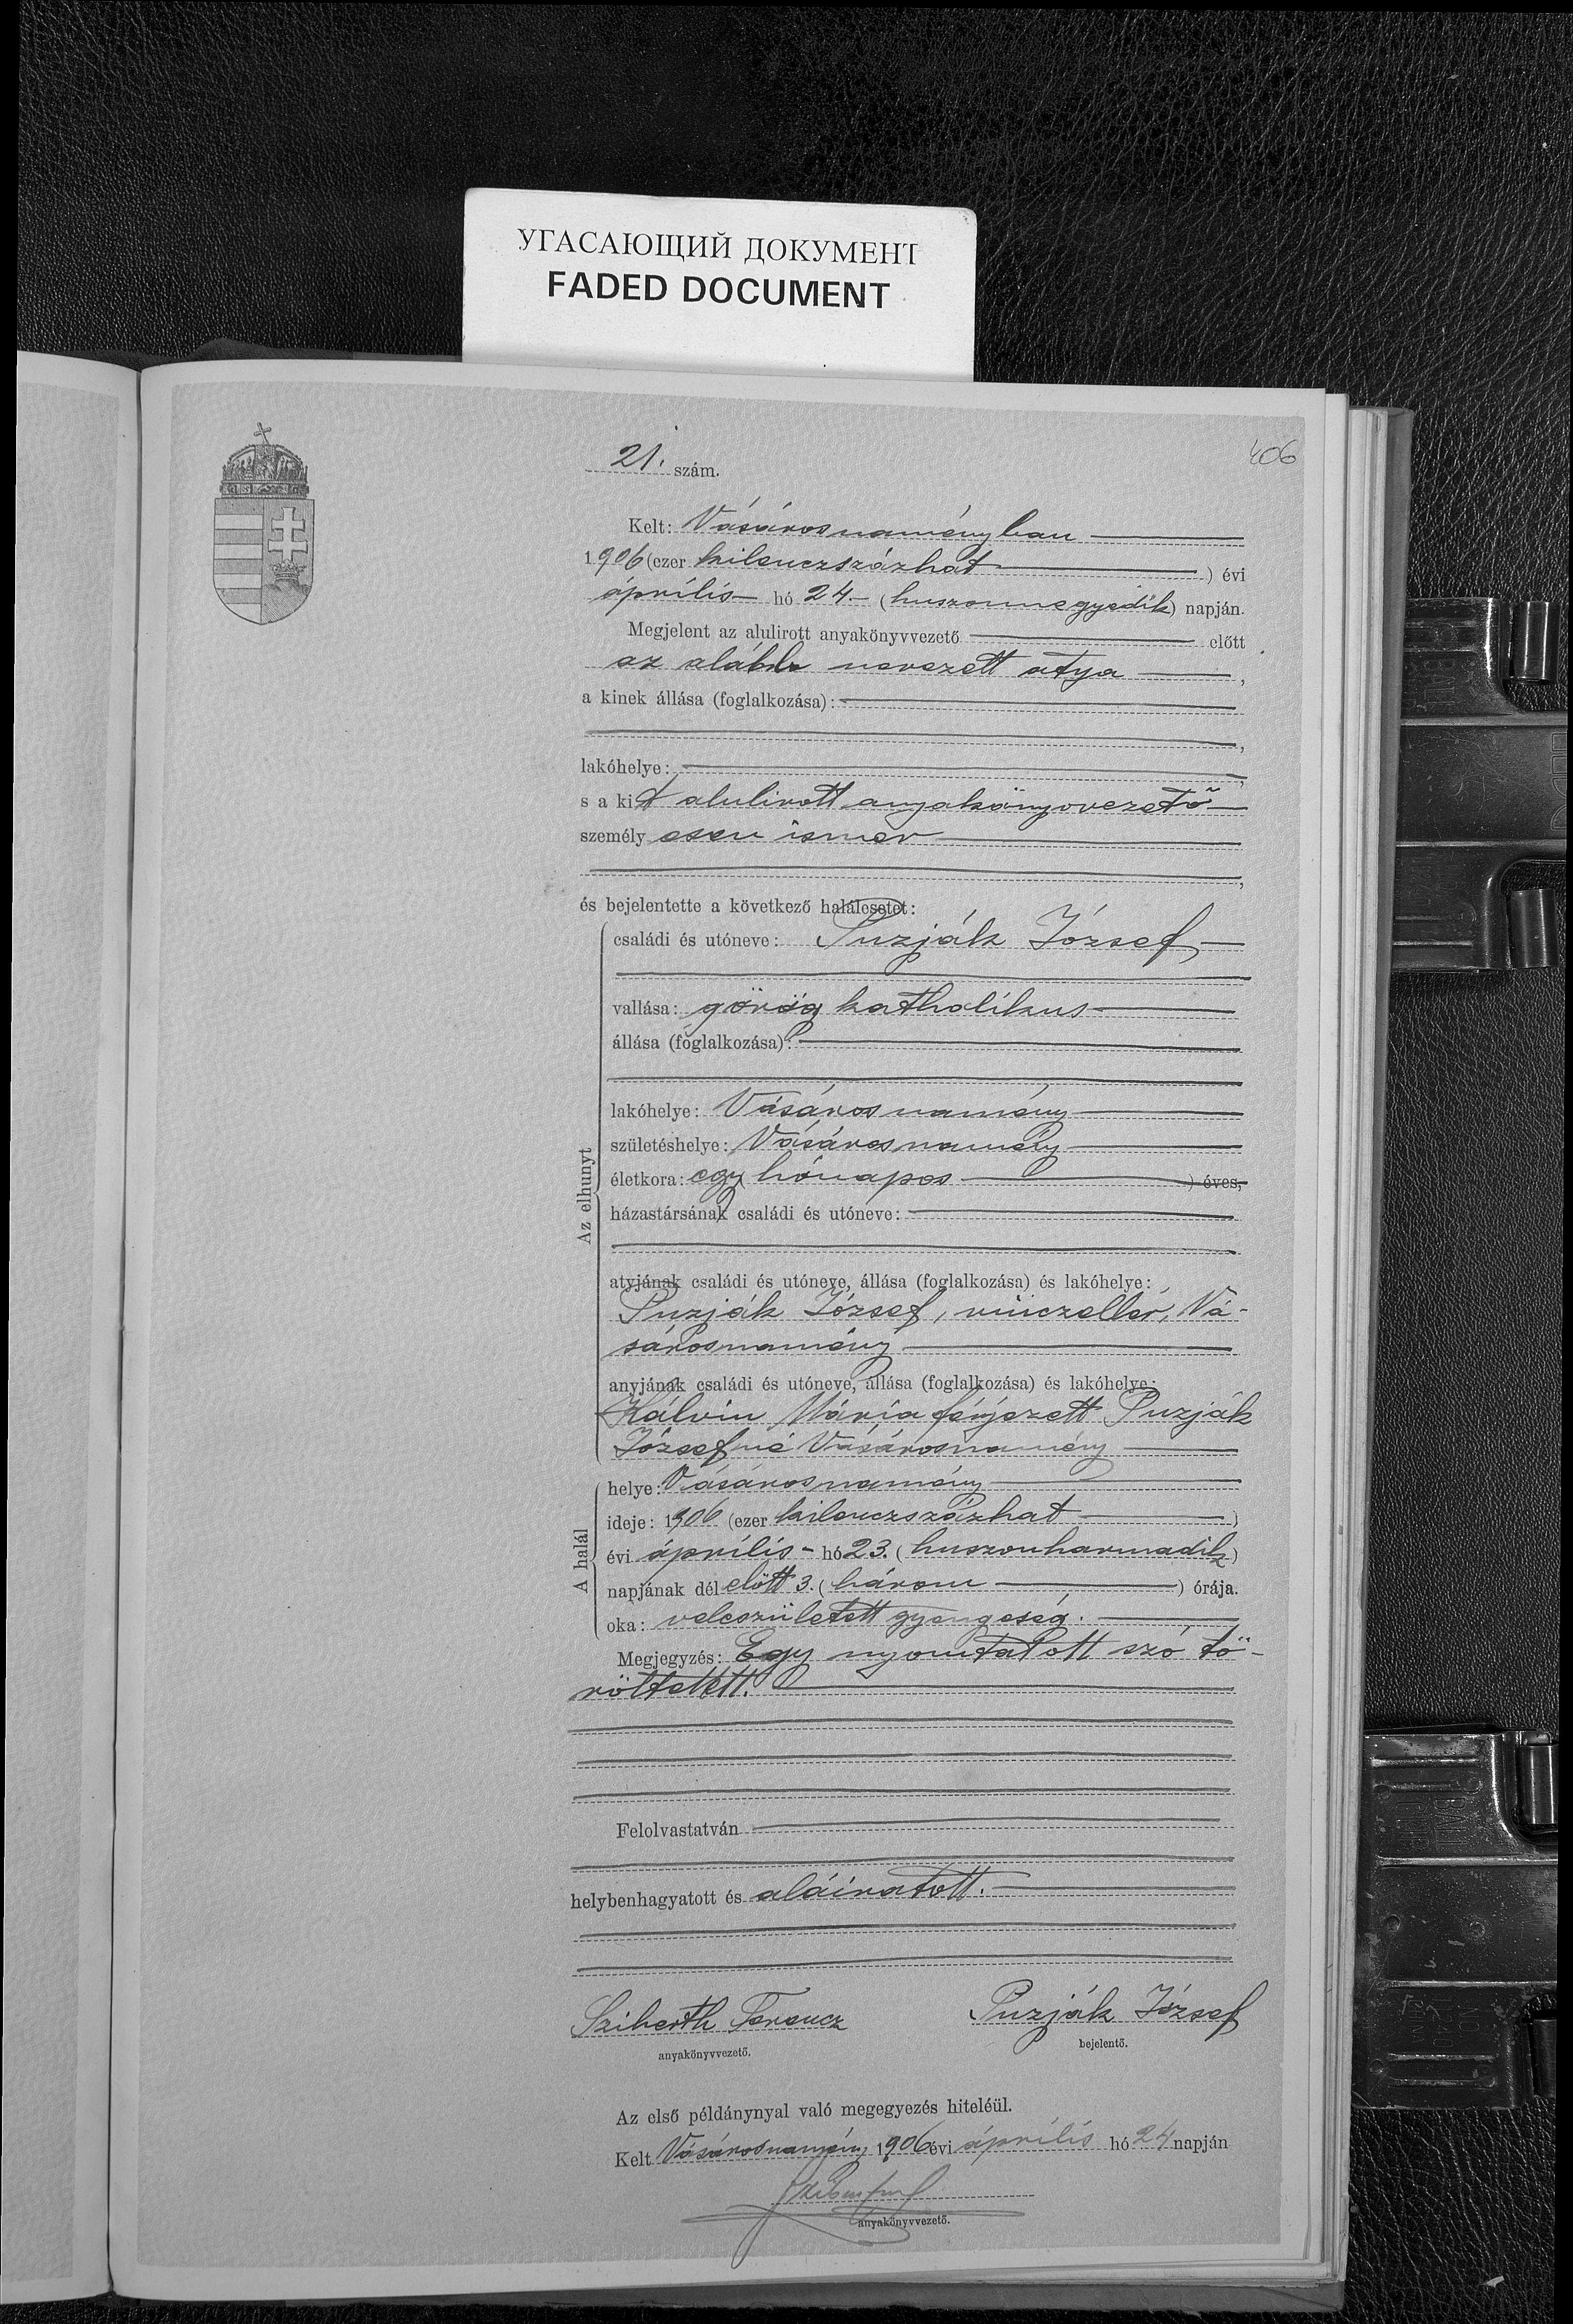 УГАСАЮЩИЙ ДОКУМЕНТ
FADED DOCUMENT
406
21. szám.
Kelt: Vásárosnaményban
1906 (ezer kilenczszázhat) évi
április hó 24. (huszonnegyedik) napján.
Megjelent az alulirott anyakönyvvezető előtt
az alább nevezett atya,
a kinek állása (foglalkozása):
lakóhelye:
s a kit alulirott anyakönyvvezető
személyesen ismer
és bejelentette a következő halálesetet:
Az elhunyt
családi és utóneve: Puzják József
vallása: görög katholikus
állása (foglalkozása):
lakóhelye: Vásárosnamény
születéshelye: Vásárosnamény
életkora: egy hónapos ) éves,
házastársának családi és utóneve:
atyjának családi és utóneve, állása (foglalkozása) és lakóhelye:
Puzják József, vinczellér, Vá-
sárosnamény
anyjának családi és utóneve, állása (foglalkozása) és lakóhelye:
Kálvin Mária férjezett Puzják
Józsefné Vásárosnamény
A halál
helye: Vásárosnamény
ideje: 1906 (ezer kilenczszázhat)
évi április hó 23. (huszonharmadik)
napjának dél előtt 3. (három) órája.
oka: veleszületett gyengeség.
Megjegyzés: Egy nyomtatott szó tö-
röltetett.
Felolvastatván
helybenhagyatott és aláiratott.
Sziberth Ferencz Puzják József
anyakönyvvezető. bejelentő.
Az első példánynyal való megegyezés hiteléül.
Kelt Vásárosnamény 1906 évi április hó 24 napján
anyakönyvvezető.